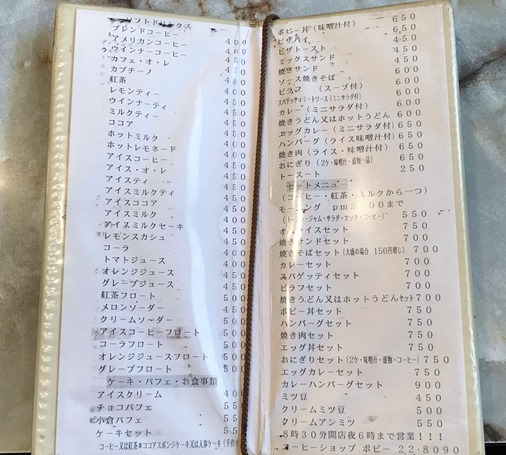 ソフトドリンクス
ブレンドコーヒー 400
アメリカンコーヒー 400
ウインナーコーヒー 450
カフェ・オ・レ 450
カプチーノ 480
紅茶 400
レモンティー 400
ウインナーティ 450
ミルクティー 450
ココア 450
ホットミルク 400
ホットレモネード 400
アイスコーヒー 450
アイス・オ・レ 450
アイスティ 450
アイスミルクティ 450
アイスココア 450
アイスミルク 400
アイスミルクセーキ 450
レモンスカシュ 450
コーラ 400
トマトジュース 400
オレンジジュース 400
グレープジュース 450
紅茶フロート 500
メロンソーダー 400
クリームソーダー 500
アイスコーヒーフロート 500
コーラフロート 500
オレンジジュースフロート 500
グレープフロート 500
ケーキ・パフェ・お食事類
アイスクリーム 400
チョコパフェ 55
小倉パフェ 55
ケーキセット 55
コーヒー又は紅茶※ココアスポンジケーキ又は人参ケーキ(手作り
ポピー丼(味噌汁付) 650
ピザパイ 450
ピザトースト 450
ミックスサンド 450
焼きサンド 450
ソース焼きそば 600
ピラフ (スープ付) 600
スパゲッティミートソース(ミニサラダ付) 650
カレー(ミニサラダ付) 650
焼きうどん又はホットうどん 600
エッグカレー(ミニサラダ付) 650
ハンバーグ(ライス味噌汁付) 650
焼き肉(ライス・味噌汁付) 650
おにぎり(2ケ・味噌汁・漬物・品) 650
トースート 250
セットメニュー
(コーヒー・紅茶・ミルクから一つ)
モーニング pm2:00まで
(トースト・ジャム・サラダ・エッグ・コーヒー) 550
オムライスセット 750
焼きサンドセット 700
焼きそばセット(大盛の場合 150円増し) 700
カレーセット 700
スパゲッティセット 700
ピラフセット 700
焼きうどん又はホットうどんセット 700
ポピー丼セット 750
ハンバーグセット 750
焼き肉セット 750
エッグ丼セット 750
おにぎりセット(2ケ・味噌汁・漬物・コーヒー) 750
エッグカレーセット 750
カレーハンバーグセット 900
ミツ豆 450
クリームミツ豆 500
クリームアンミツ 550
8時30分開店夜6時まで営業!!!
コーヒーショップ ポピー 22-8090